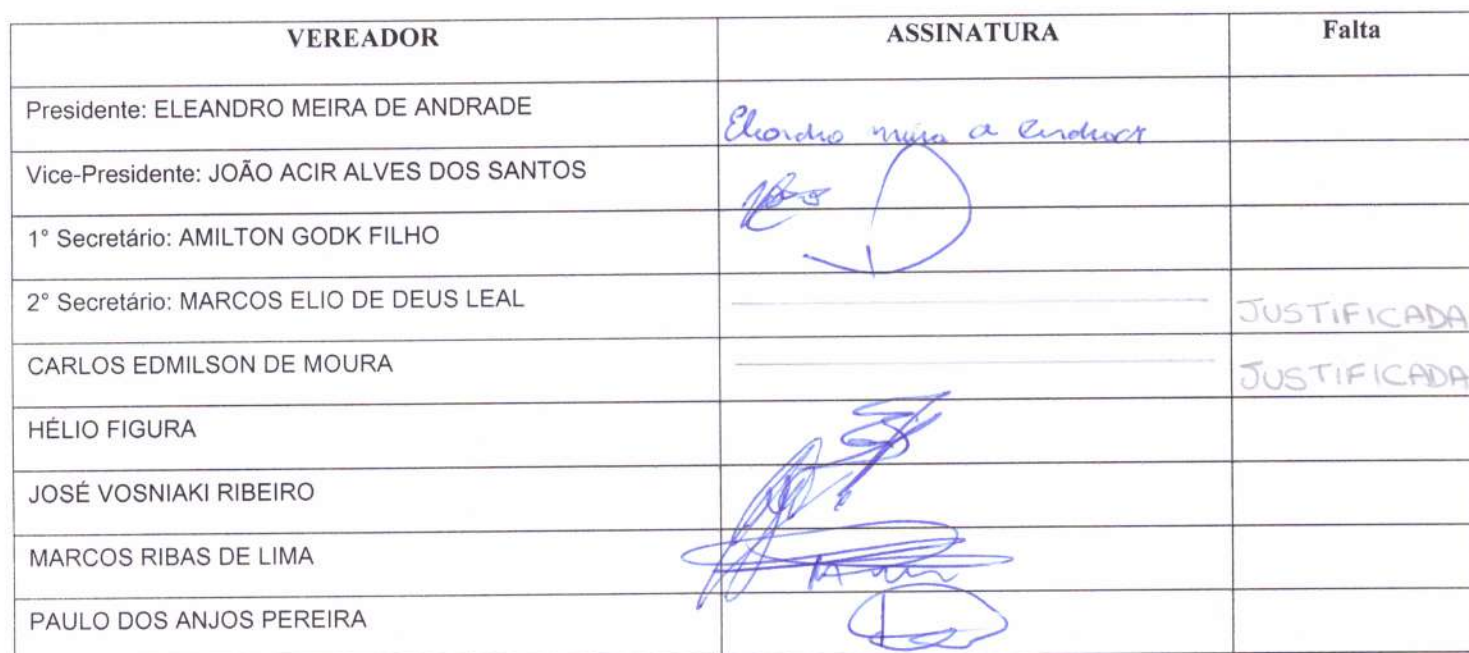 VEREADOR ASSINATURA Falta
Presidente: ELEANDRO MEIRA DE ANDRADE Eleandro
Vice-Presidente: JOÃO ACIR ALVES DOS SANTOS
1° Secretário: AMILTON GODK FILHO
2° Secretário: MARCOS ELIO DE DEUS LEAL JUSTIFICADA
CARLOS EDMILSON DE MOURA JUSTIFICADA
HÉLIO FIGURA
JOSÉ VOSNIAKI RIBEIRO
MARCOS RIBAS DE LIMA
PAULO DOS ANJOS PEREIRA